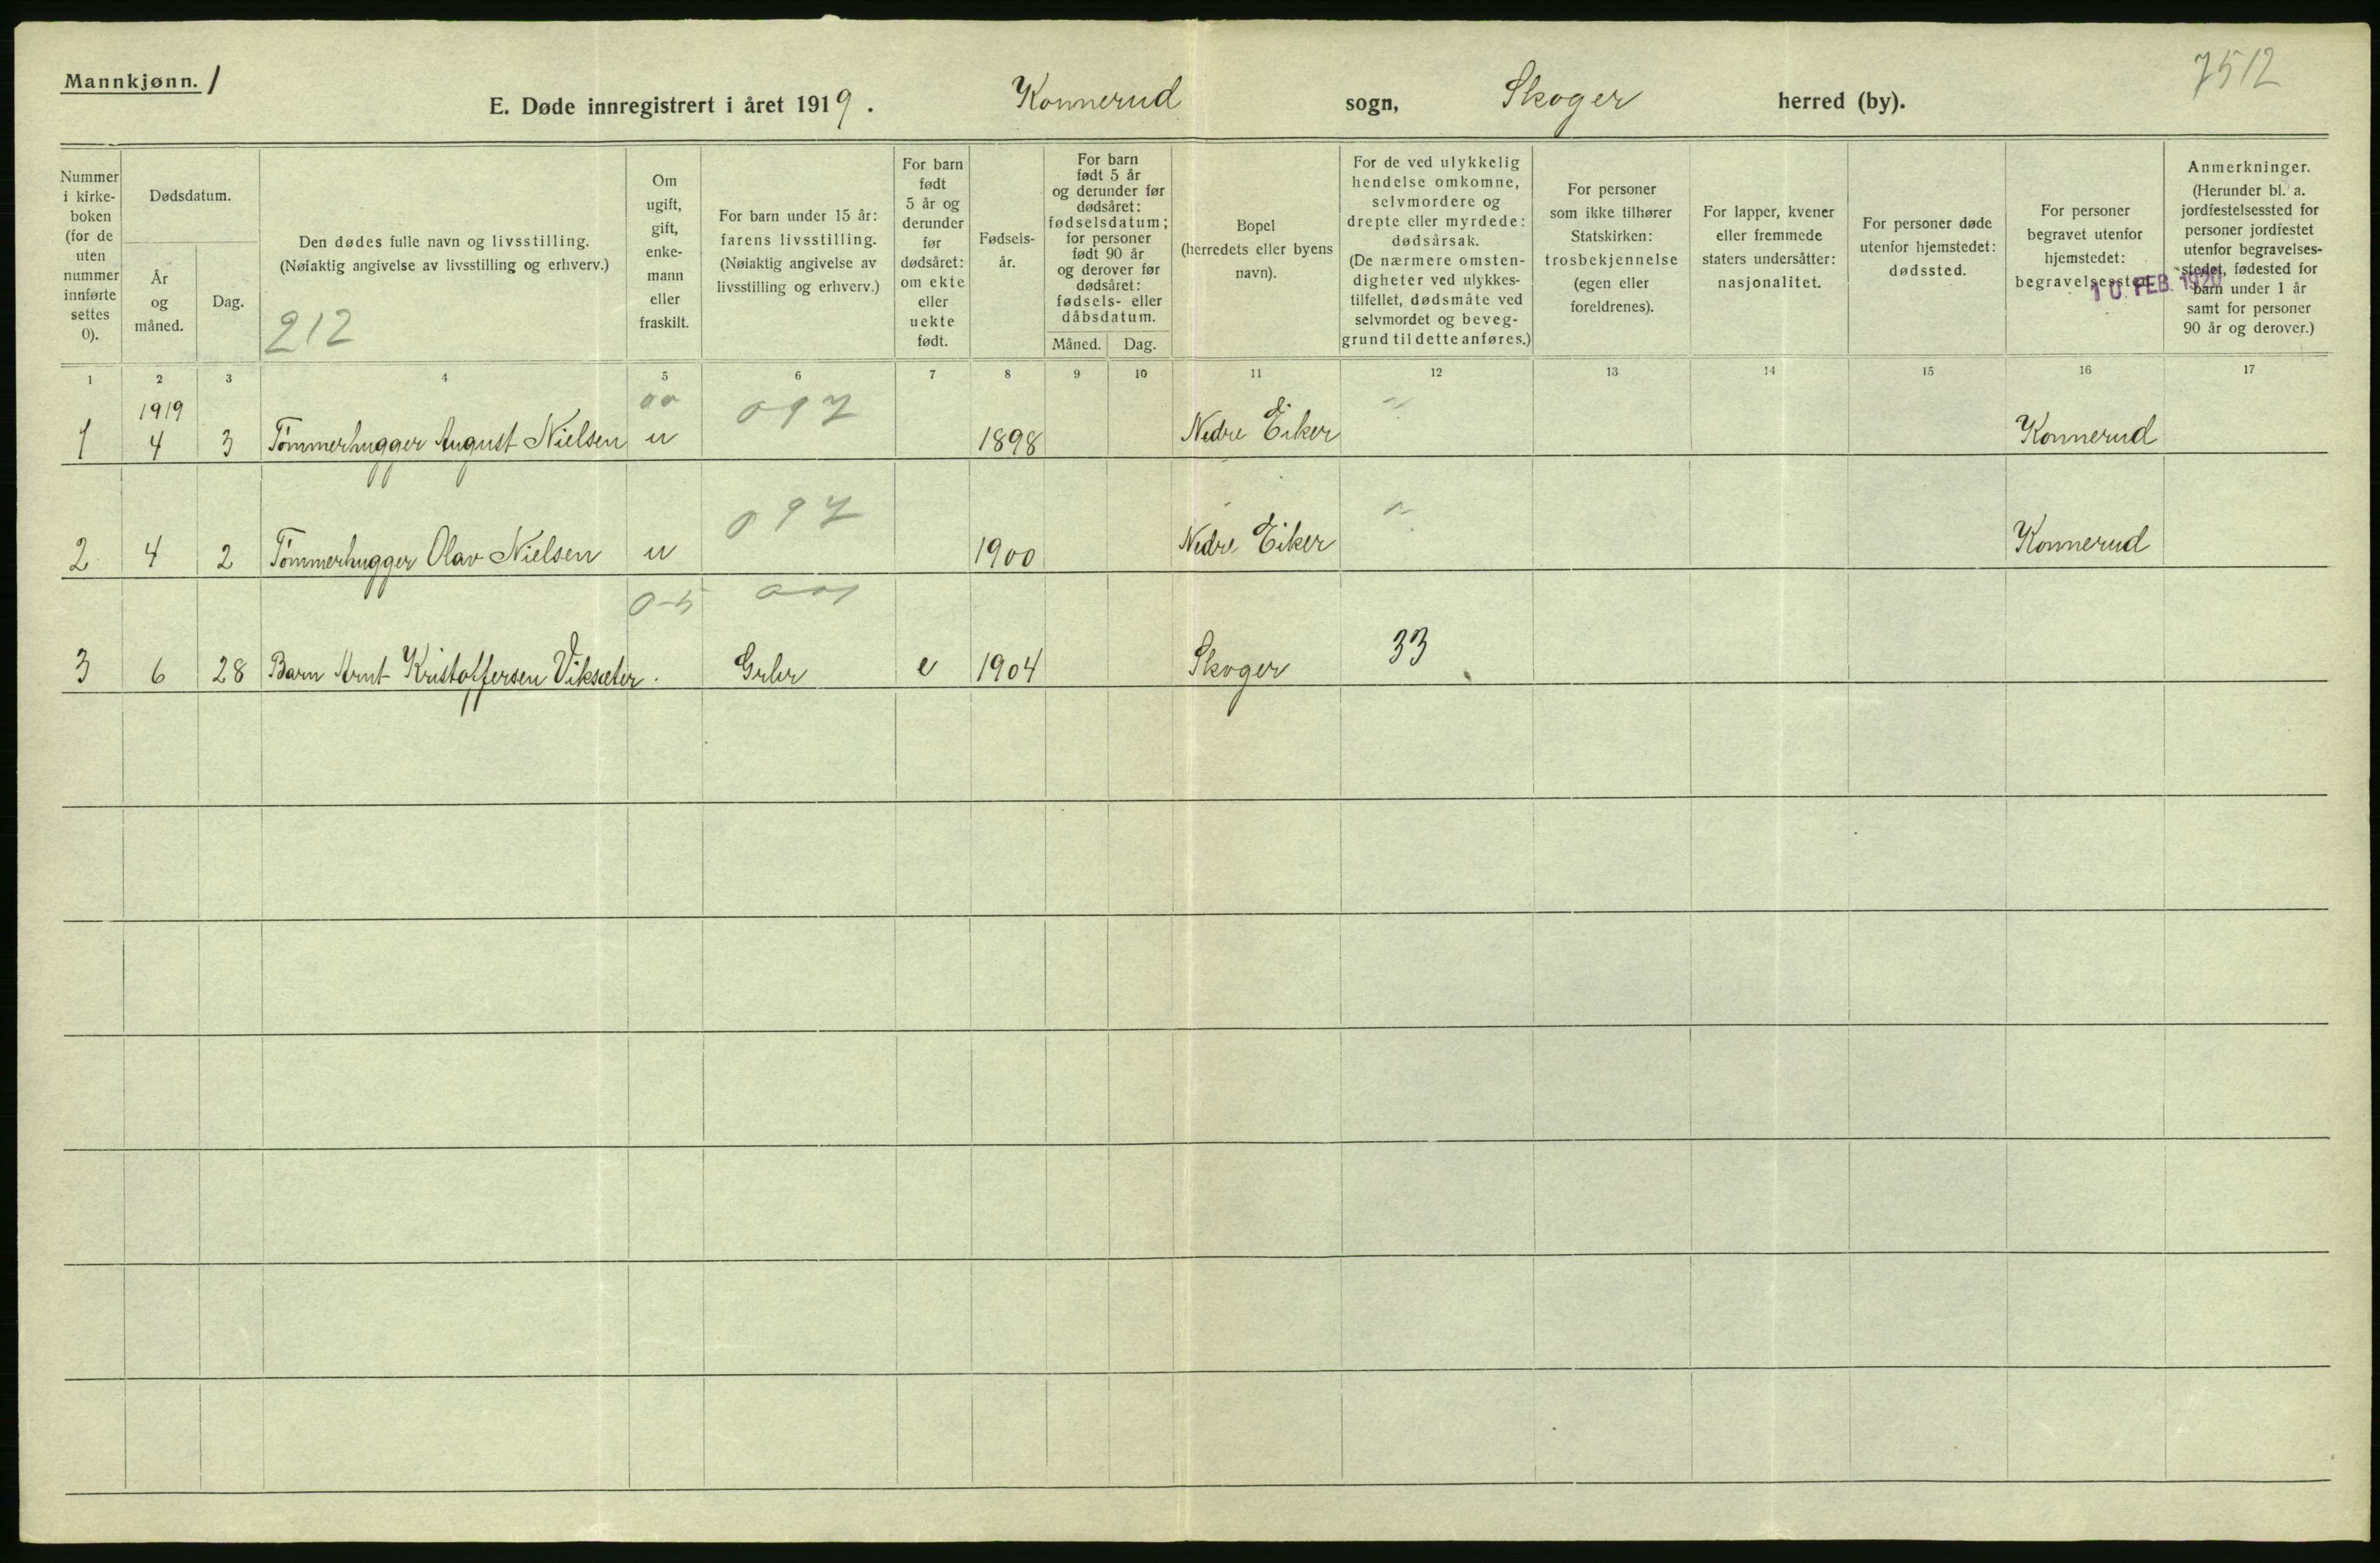 7512
Mannkjønn. 1
E. Døde innregistrert i året 1919. Konnerud sogn, Skoger herred (by).
Nummer
i kirke-
boken
(for de
uten
nummer
innførte
settes
0).
Dødsdatum.
År
og
måned.
Dag.
Den dødes fulle navn og livsstilling.
(Nøiaktig angivelse av livsstilling og erhverv.)
212
Om
ugift,
gift,
enke-
mann
eller
fraskilt.
For barn under 15 år:
farens livsstilling.
(Nøiaktig angivelse av
livsstilling og erhverv.)
For barn
født
5 år og
derunder
før
dødsåret:
om ekte
eller
uekte
født.
Fødsels-
år.
For barn
født 5 år
og derunder før
dødsåret:
fødselsdatum;
for personer
født 90 år
og derover før
dødsåret:
fødsels- eller
dåbsdatum.
Måned. Dag.
Bopel
(herredets eller byens
navn).
For de ved ulykkelig
hendelse omkomne,
selvmordere og
drepte eller myrdede:
dødsårsak.
(De nærmere omsten-
digheter ved ulykkes-
tilfellet, dødsmåte ved
selvmordet og beveg-
grund til dette anføres.)
For personer
som ikke tilhører
Statskirken:
trosbekjennelse
(egen eller
foreldrenes).
For lapper, kvener
eller fremmede
staters undersåtter:
nasjonalitet.
For personer døde
utenfor hjemstedet:
dødssted.
For personer
begravet utenfor
hjemstedet:
begravelsessted.
10. FEB. 1920
Anmerkninger.
(Herunder bl. a.
jordfestelsessted for
personer jordfestet
utenfor begravelses-
stedet, fødested for
barn under 1 år
samt for personer
90 år og derover.)
1 2 3 4 5 6 7 8 9 10 11 12 13 14 15 16 17
1919 00 097
1 4 3 Tömmerhugger August Nielsen u 1898 Nedre Eiker Konnerud
097
2 4 2 Tömmerhugger Olav Nielsen u 1900 Nedre Eiker Konnerud
0-5 001
3 6 28 Barn Arnt Kristoffersen Viksæter. Grbr e 1904 Skoger 33